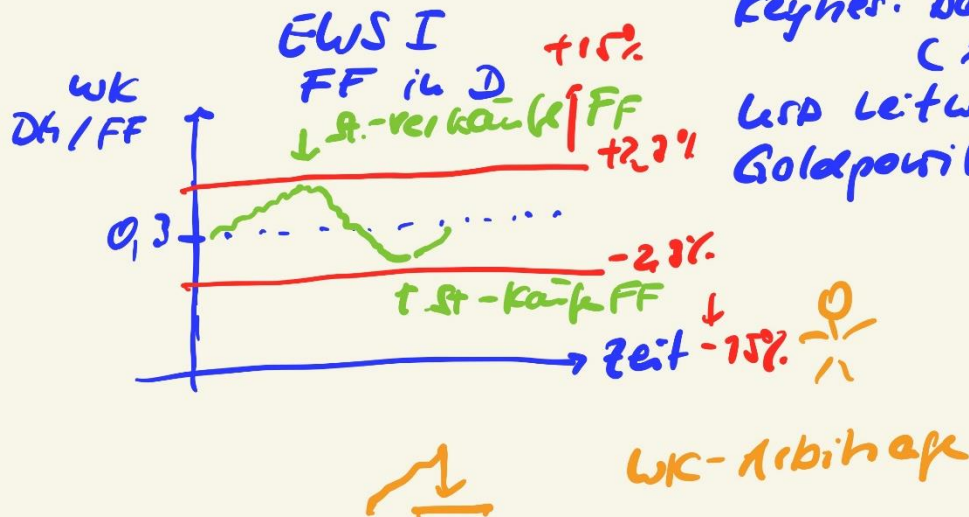 EWS I
FF in D
WK
DM/FF
St.-verkäufe FF
+15%
+2,3%
0,3
-2,3%
St-Käufe FF
Zeit
-15%
Keynes:
USD Leitw
Goldpari
WK-Arbitrage